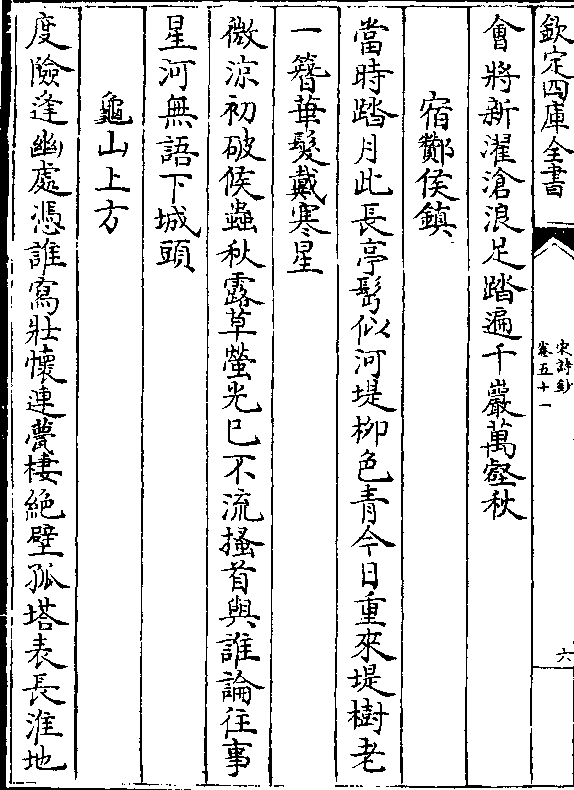 欽定四庫全書
宋詩鈔
卷五十一
六
會將新濯滄浪足踏遍千巖萬壑秋
宿酇侯鎮
當時踏月此長亭鬢似河堤柳色青今日重來堤樹老
一簪華髮戴寒星
微涼初破候蟲秋露草螢光已不流搔首與誰論往事
星河無語下城頭
龜山上方
度險逢幽處憑誰寫壯懷連甍棲絶壁孤塔表長淮地